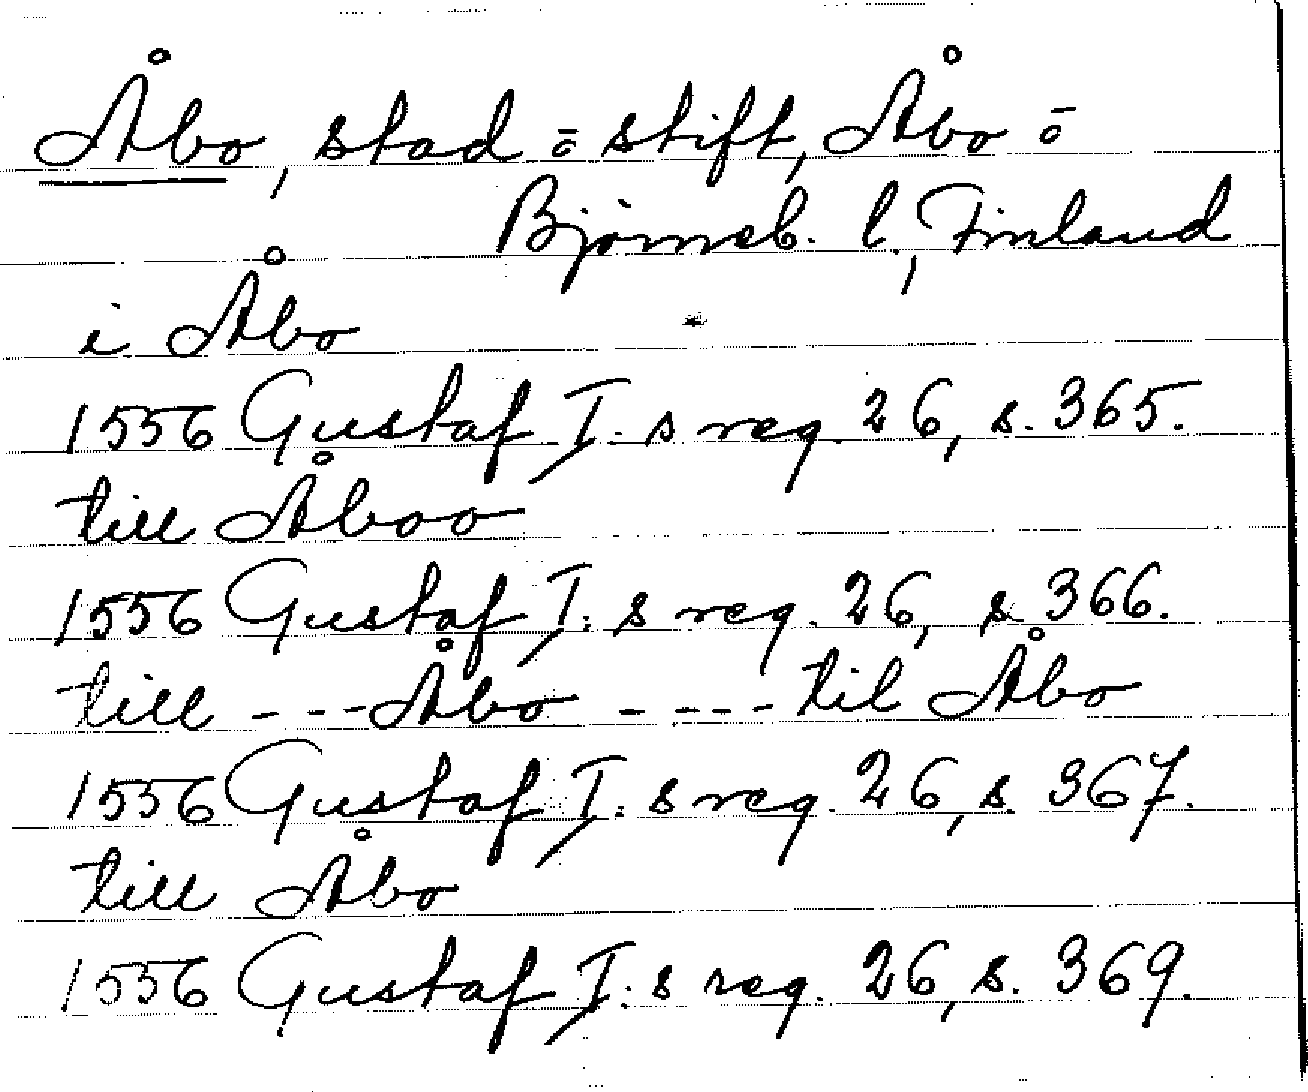 Åbo, stad o. stift, Åbo o.
Björneb. l., Finland
i Åbo
1556 Gustaf I: s reg. 26, s. 365.
till Åboo
1556 Gustaf I: s reg. 26, s. 366.
till ---Åbo ---- til Åbo
1556 Gustaf I: s reg. 26, s. 367.
till Åbo
1556 Gustaf I: s reg. 26, s. 369.